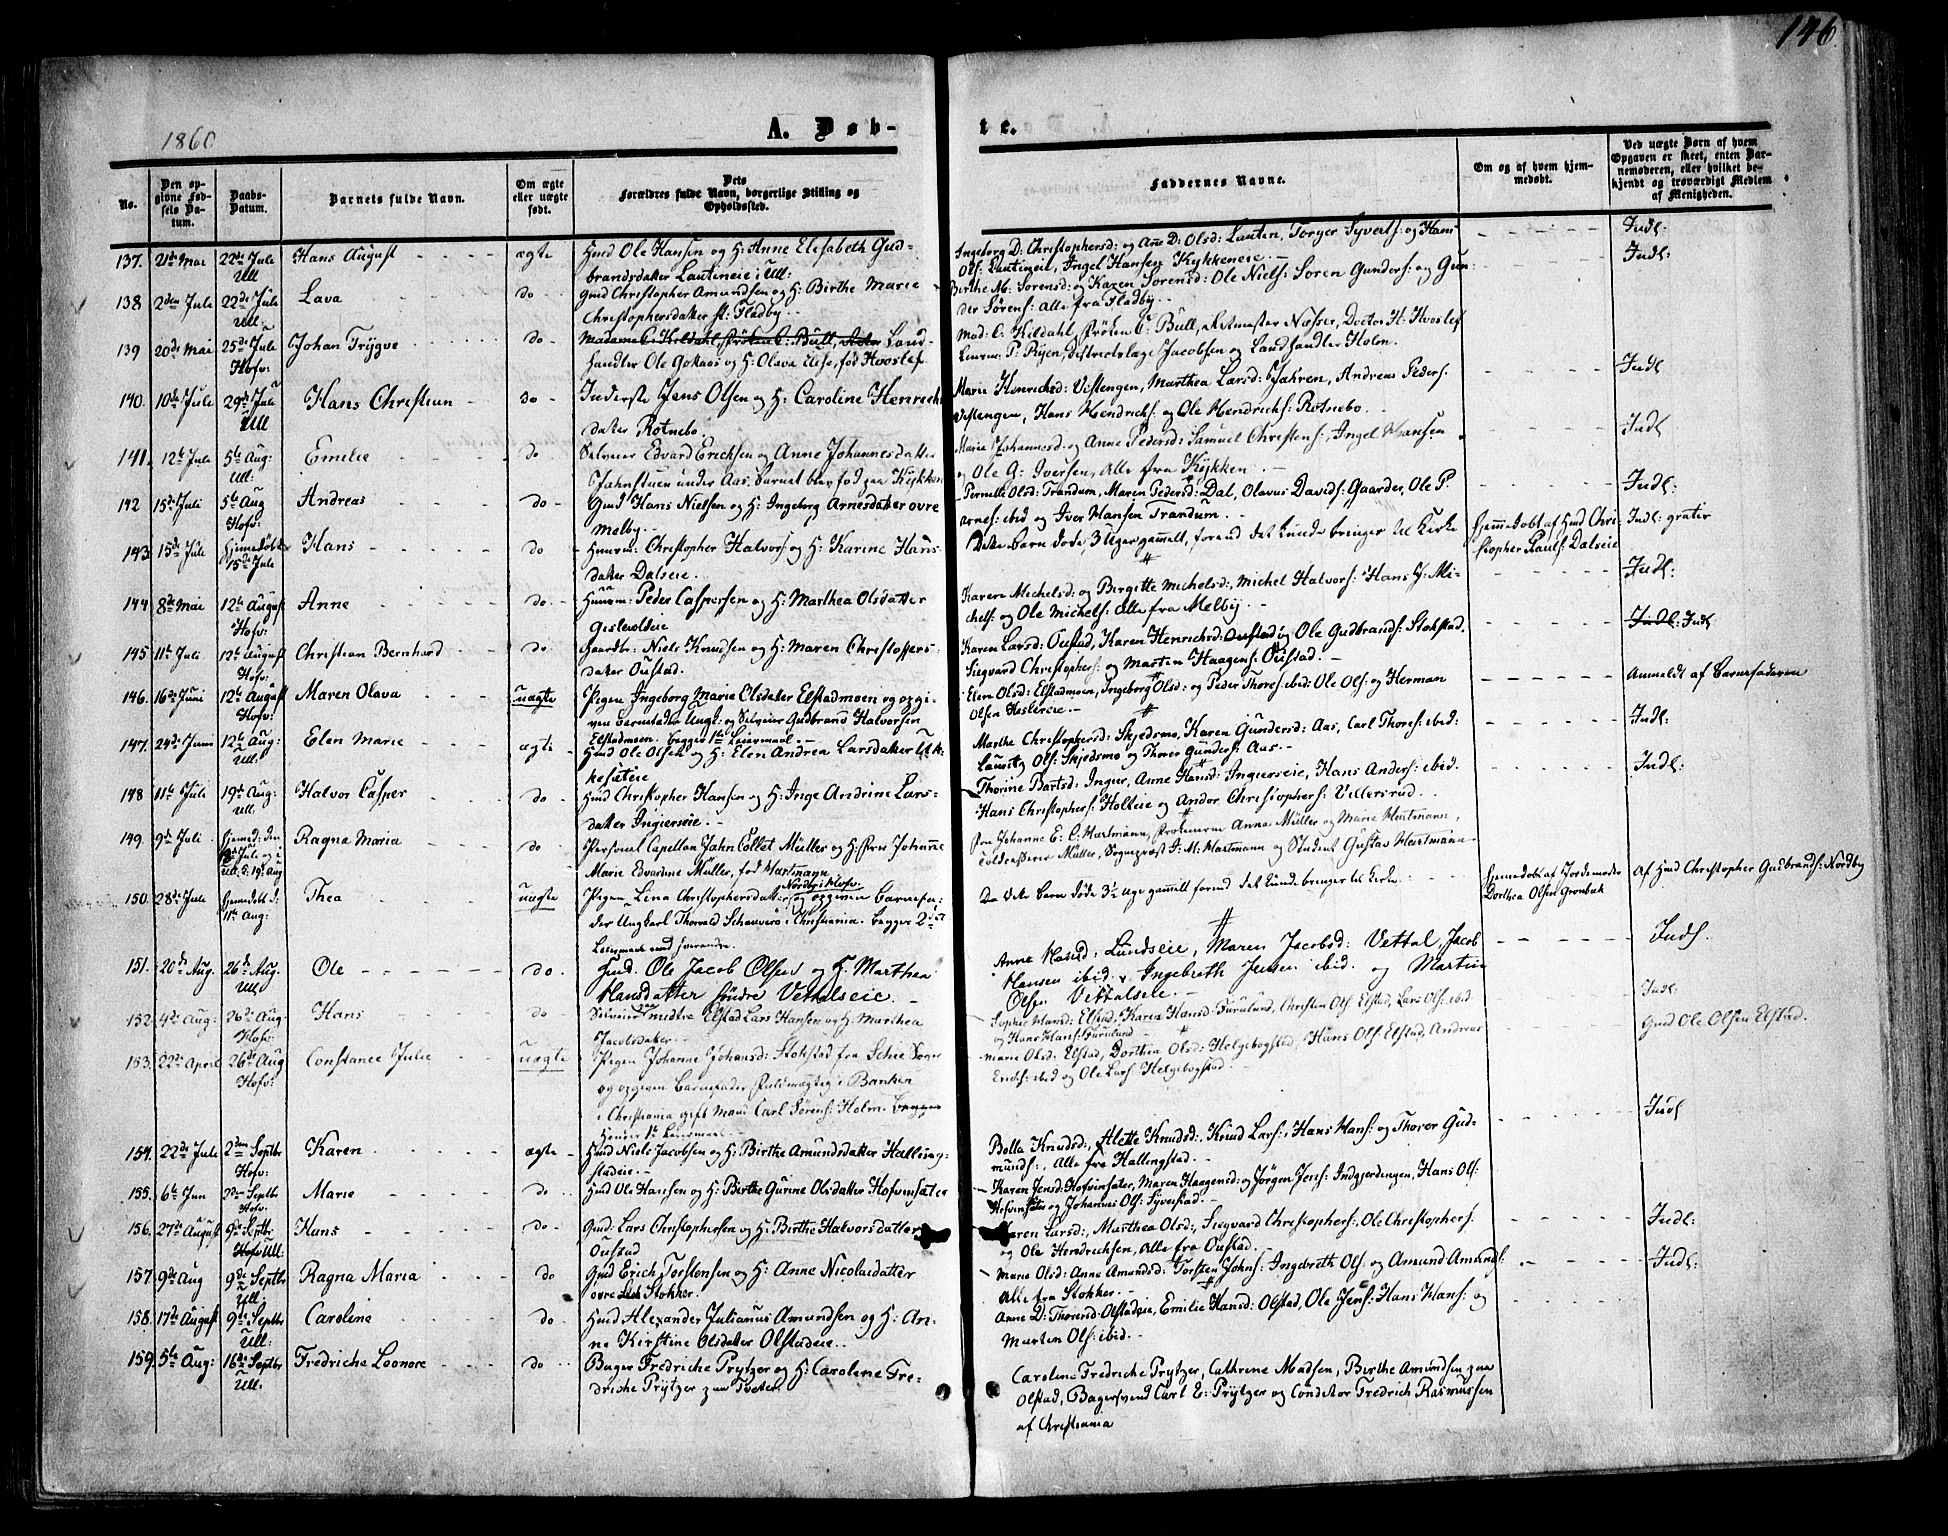 146.
1860
A. Døb-
te.
No.
Den op-
givne Fød-
sels Da-
tum.
Daabs-
Datum.
Barnets fulde Navn.
Om ægte
eller uægte
født.
Dets
Forældres fulde Navn, borgerlige Stilling og
Opholdssted.
Faddernes Navne.
Om og af hvem hjem-
medøbt.
Ved uægte Børn af hvem
Opgaven er skeet, enten Bar-
nemoderen, eller hvilket be-
kjendt og troværdigt Medlem
af Menigheden.
137. 21de Mai 22de Juli Ull Hans August ægte Hmd Ole Hansen og H: Anne Elisabeth Gud-
brandsdatter Lauteneie i Ull:
Ingeborg D: Christophersd: og Ane D: Olsd: Lauten, Torger Syverts: og Hans
Ols: Lauteneie, Ingel Hansen Kykkeneie.
Indl:
138 2den Juli 22de Juli Ull: Lava do Gmd Christopher Amundsen og H: Birthe Marie
Christophersdatter st: Fladby
Birthe M: Sørensd: og Karen Sørensd: Ole Niels: Søren Gunders: og Gun-
der Sørens: Alle fra Fladby
Indl:
139 20de Mai 25de Juli Hofv: Johan Trygve do Madame C: Keldahl, Frøken C: Büll, Land-
handler Ole Gokaas og H: Olava Elise, fød Hvoslef
Mad: C: Keldahl, Frøken C: Büll, Retmester Næsser, Doctor H: Hvoslef
P: Ryen, Districtslæge Jacobsen og Landhandler Holm.
140. 10de Juli 29de Juli Ull Hans Christian do Inderste Jens Olsen og H: Caroline Henrichs
datter Rotnebo
Marie Henrichsd: Vestengen, Marthea Larsd: Jahren, Andreas Peders:
Vestengen, Hans Hendrichs: og Ole Hendrichs: Rotnebo
Indl
141. 12te Juli 5te Aug: Ull. Emilie do Selveier Edvard Erichsen og Anne Johannesdatter
Jahnstuen under Aas. Barnet blev fød paa Kykken
Marie Johannesd: og Anne Pedersd: Samuel Christens:, Ingel Hansen
og Ole G: Iversen, Alle fra Kykken.
Indl
142 15de Juli 5te Aug Hofv: Andreas do Gmd Hans Nielsen og H: Ingeborg Arnesdatter øvre
Melby
Pernille Olsd: Trandum, Maren Pedersd: Dal, Olavus Davids: Gaarder, Ole P.
Arnes: ibid og Iver Hansen Trandum.
Indl:
143 15de Juli hjemmedøbt 15de Juli Hans do Huusm: Christopher Halvors: og H: Karine Hans-
datter Dalseie.
Dette barn døde, 3 Uger gammelt, forend det kunde bringes til Kirke
hjemmedøbt af Hmd Chri-
stopher Pauls: Dalseie
Indl: gratis
144 8de Mai 12te August Hofv: Anne do Huusm: Peder Caspersen og H: Marthea Olsdatter
Gislevoldeie
Karen Michelsd: og Birgitte Michelsd:, Michel Halvors: Hans Mi-
chels: og Ole Michels: alle fra Melby.
Indl:
145 11te Juli 12te August Hofv: Christian Bernhard do Gaardbr: Niels Knudsen og H: Maren Christoffers-
datter Oustad.
Karen Larsd: Oustad, Karen Henrichsd: Oustad og Ole Gudbrands: Stokstad,
Siegvard Christophers: og Marten Haagens: Oustad.
Indl: Indl
146. 16de Juni 12te August Hofv: Maren Olava uægte Pigen Ingeborg Marie Olsdatter Elstadmoen og opgi-
ven barnefader Ungk: og Selveier Gudbrand Halvorsen
Elstadmoen. begges 1ste Leiermaal.
Elen Olsd: Elstadmoen, Ingeborg Olsd: og Peder Thores: ibid: Ole Ols: og Herman
Olsen Heslereie.
Anmeldt af Barnefaderen
147. 24de Juni 12te Aug: Ull: Elen Marie ægte Hmd Ole Olsen og H: Elen Andrea Larsdatter Uk-
kesuteie
Marthe Christophersd: Skjedsmo, Karen Gundersd: Aas, Carl Thores: ibid:
Lauritz Ols: Skjedsmo og Thorer Gunders: Aas.
Indl:
148 11te Juli 19te Aug: Ull: Halvor Casper do Hmd Christopher Hansen og H: Inge Andrine Lars-
datter Ingierseie.
Thorine Bartsd: Ingier, Anne Hansd: Ingierseie, Hans Anders: ibid.
Hans Christophers: Holleie og Andor Christophers: Villersrud
Indl:
149. 9de Juli hjemmed: den Juli og i Ull. D: 19 Aug Ragna Maria do Personel Capellan Jahn Collet Müller og H: Fru Johanne
Marie Edvardine Müller, fød Hartmann
Fru Johanne E: C: Hartmann, Frøknerne Anna Müller og Marie Hartmann,
Müller, Sognepræst J: M: Hartmann og Student Gustav Hartmann
150 28de Juli hjemmedøbt d: 11te Aug: Thea uægte Pigen Lina Christophersdatter Nordby i Hofv: og opgiven barnefa-
der Ungkarl Thorvald Schauerø i Christiania. begges 2det
Leiermaal med hverandre.
Da dette barn døde 3½ Uge gammelt forend det kunde bringes til Kirke
hjemmedøbt af Jordemoder
Dorthea Olsen Grønbæk
Af Hmd Christopher Gudbrands: Nordby
151. 20de Aug. 26de Aug. Ull Ole do. Hmd. Ole Jacob Olsen og H. Marthea
Hansdatter søndre Vettalseie.
Anne Hansd: Lundseie, Maren Jacobsd: Vettal, Jacob
Hansen ibid. Ingebreth Jensen ibid. og Martin
Olsen Vettalseie.
Indl.
152 4de Aug: 26de Aug Hofv: Hans do Selveier Smedtre Elstad Lars Hansen og H. Marthea
Jacobsdatter.
Sophie Hansd: Elstad, Karen Hansd: Furulund, Christen Ols: Elstad, Lars Ols: ibid
og Hans Hans: Furulund
Indl:
153. 22de April 26de Aug Hofv: Constance Julie uægte Pigen Johanne Johansd: Stokstad fra Schie Sogn
og opgiven Barnefader Fuldmægtig i Banken
i Christiania gift Mand Carl Sørens: Holm. begges
Hendes 1ste Leiermaal.
Marie Olsd: Elstad, Dorthea Olsd: Helgebogstad, Hans Ols: Elstad, Andreas
Erichs: ibid og Ole Lars: Helgebogstad.
Gmd Ole Olsen Elstad.
154. 22de Juli 2den Septbr Hofv: Karen ægte Hmd Niels Jacobsen og H: Birthe Amundsdatter Halling-
stadeie.
Bolla Knudsd:, Alette Knudsd:, Knud Lars:, Hans Hans: og Thorer Gud-
munds:, Alle fra Hallingstad.
Indl
155. 6te Jun 2den Septbr Hofv. Marie do Hmd Ole Hansen og H: Birthe Gurine Olsdatter Hofvinsæter
Karen Jensd: Hofvinsæter, Maren Haagensd: og Jørgen Jens: Indgjerdingen, Hans Ols:
Hofvinsæter og Johannes Ols: Syverstad.
156. 27de August 9de Septbr Hofv Ull: Hans do Gmd: Lars Christophersen og H: Birthe Halvorsdatter
Oustad
Karen Larsd:, Marthea Olsd:, Siegvard Christophers:, Ole Christophers:
og Ole Hendrichsen, Alle fra Oustad.
Indl:
157. 9de Aug 9de Septbr Ull: Ragna Maria do Gmd Erich Torstensen og H: Anne Nicolaidatter
øvre Stokker.
Marie Olsd: Anne Amundsd: Torsten Johns: Ingebreth Ols: og Amund Amunds:
Alle fra Stokker.
Indl:
158. 17de August 9de Septbr Ull: Caroline do Hmd Alexander Julianus Amundsen og H: An-
ne Kirstine Olsdatter Olstadeie.
Anne D: Thorend: Olstadeie, Emilie Hansd: Olstad, Ole Jens: Hans Hans: og
Marten Ols: ibid.
159 5te Aug: 16de Septbr Ull: Fredriche Leonore do Bager Fredriche Prytzer og H: Caroline Fre-
driche Prytzer paa Tveter.
Caroline Fredriche Prytzer, Cathrine Madsen, Birthe Amundsen paa
Olstad, Bagersvend Carl E: Prytzer og Conditor Fredrich Rasmussen
af Christiania